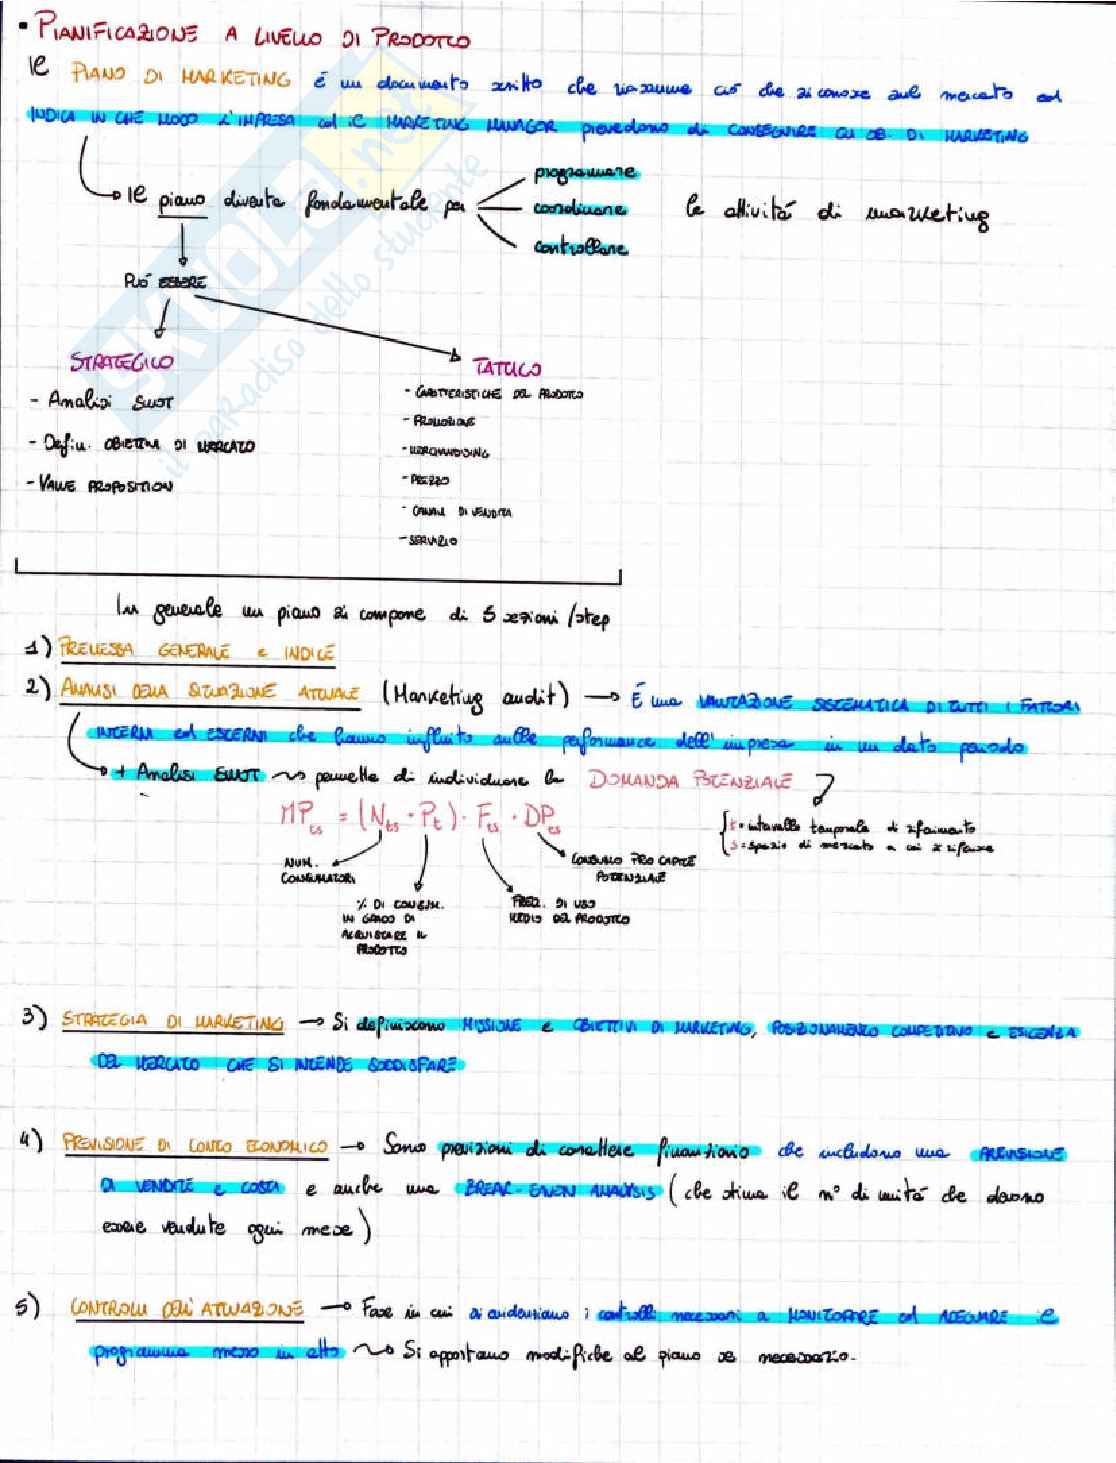 • PIANIFICAZIONE A LIVELLO DI PRODOTTO
Il PIANO DI MARKETING é un documento scritto che riassume ciò che si conosce sul mercato ed
INDICA IN CHE MODO L'IMPRESA ed il MARKETING MANAGER prevedono di CONSEGUIRE GLI OB. DI MARKETING
programmare
Il piano diventa fondamentale per coordinare le attivitá di marketing
controllare
PUÓ ESSERE
STRATEGICO
TATTICO
- Analisi SWOT
- Defin. OBIETTIVI DI MERCATO
- VALUE PROPOSITION
- CARATTERISTICHE DEL PRODOTTO
- PROMOZIONE
- MERCHANDISING
- PREZZO
- CANALI DI VENDITA
- SERVIZIO
In generale un piano si compone di 5 sezioni/step
1) PREMESSA GENERALE e INDICE
2) ANALISI DELLA SITUAZIONE ATTUALE (Marketing audit) → É una VALUTAZIONE SISTEMATICA DI TUTTI I FATTORI
INTERNI ed ESTERNI che hanno influito sulle performance dell'impresa in un dato periodo
+ Analisi SWOT ~> permette di individuare la DOMANDA POTENZIALE
MPts = (Nts · Pt) · Fts · DPts
t = intervallo temporale di riferimento
s = spazio di mercato a cui si riferisce
NUM. CONSUMATORI
CONSUMO PRO CAPITE POTENZIALE
% DI CONSUM. IN GRADO DI ACQUISTARE IL PRODOTTO
FREQ. DI USO MEDIO DEL PRODOTTO
3) STRATEGIA DI MARKETING → Si definiscono MISSIONE e OBIETTIVI DI MARKETING, POSIZIONAMENTO COMPETITIVO e ESIGENZA
DEL MERCATO CHE SI INTENDE SODDISFARE
4) PREVISIONE DI CONTO ECONOMICO → Sono previsioni di carattere finanziario che includono una PREVISIONE
DI VENDITE e COSTI e anche una BREAK-EVEN ANALYSIS (che stima il n° di unitá che devono
essere vendute ogni mese)
5) CONTROLLI DELL'ATTUAZIONE → Fase in cui si evidenziano i controlli necessari a MONITORARE ed ADEGUARE il
programma messo in atto ~> Si apportano modifiche al piano se necessario.
SKUOLA.net
il paradiso dello studente